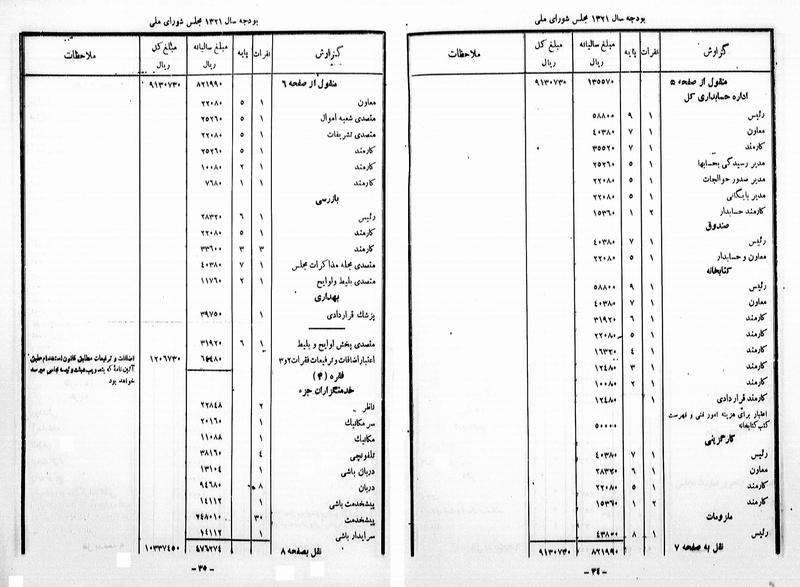 بودجه سال ۱۳۲۱ مجلس شورای ملی
گزارش نفرات پایه مبلغ سالیانه ریال مبلغ کل ریال ملاحظات
منقول از صفحه ۵ ۱۳۵۵۷۰ ۹۱۳۰۷۳۰
اداره حسابداری کل
رئیس ۱ ۹ ۵۸۸۰۰
معاون ۱ ۷ ۴۰۳۸۰
کارمند ۱ ۷ ۳۵۵۲۰
مدیر رسیدگی بحسابها ۱ ۵ ۲۵۲۶۰
مدیر صدور حوالجات ۱ ۵ ۲۲۰۸۰
مدیر بایگانی ۱ ۵ ۲۲۰۸۰
کارمند حسابدار ۲ ۱ ۱۵۳۶۰
صندوق
رئیس ۱ ۷ ۴۰۳۸۰
معاون و حسابدار ۱ ۵ ۲۲۰۸۰
کتابخانه
رئیس ۱ ۹ ۵۸۸۰۰
معاون ۱ ۷ ۴۰۳۸۰
کارمند ۱ ۶ ۳۱۹۲۰
کارمند ۱ ۵ ۲۲۰۸۰
کارمند ۱ ۴ ۱۶۳۲۰
کارمند ۱ ۳ ۱۲۴۸۰
کارمند ۱ ۲ ۱۰۰۸۰
کارمند قراردادی ۱ ۱۲۴۸۰
اعتبار برای هزینه امور فنی و فهرست
کتب کتابخانه ۵۰۰۰۰
کارگزینی
رئیس ۱ ۷ ۴۰۳۸۰
معاون ۱ ۶ ۲۸۳۲۰
کارمند ۱ ۵ ۲۲۰۸۰
کارمند ۲ ۱ ۱۵۳۶۰
ملزومات
رئیس ۱ ۸ ۴۳۸۰۰
نقل به صفحه ۷ ۸۲۱۹۹۰ ۹۱۳۰۷۳۰
- ۳۴ -
بودجه سال ۱۳۲۱ مجلس شورای ملی
گزارش نفرات پایه مبلغ سالیانه ریال مبلغ کل ریال ملاحظات
منقول از صفحه ۶ ۸۲۱۹۹۰ ۹۱۳۰۷۳۰
معاون ۱ ۵ ۲۲۰۸۰
متصدی شعبه اموال ۱ ۵ ۲۵۲۶۰
متصدی تشریفات ۱ ۵ ۲۲۰۸۰
کارمند ۱ ۵ ۲۵۲۶۰
کارمند ۱ ۲ ۱۰۰۸۰
کارمند ۱ ۱ ۷۶۸۰
بازرسی
رئیس ۱ ۶ ۲۸۳۲۰
کارمند ۱ ۵ ۲۲۰۸۰
کارمند ۳ ۳ ۳۳۶۰۰
متصدی مجله مذاکرات مجلس ۱ ۷ ۴۰۳۸۰
متصدی بلیط و لوایح ۱ ۲ ۱۱۷۶۰
بهداری
پزشک قراردادی ۱ ۳۹۷۵۰
متصدی پخش لوایح و بلیط ۱ ۶ ۳۱۹۲۰
اعتبار اضافات و ترفیعات فقرات ۲ و ۳ ۱۲۰۶۷۳۰ اضافات و ترفیعات مطابق قانون استخدام طبق
آئین نامه که بتصویب هیئت رئیسه مجلس میرسد
خواهد بود
فقره (۴)
خدمتگزاران جزء
ناظر ۲ ۲۲۸۴۸
سر مکانیک ۱ ۲۰۱۶۰
مکانیک ۱ ۱۱۰۸۸
تلفونچی ۴ ۳۸۱۶۰
دربان باشی ۱ ۱۳۱۰۴
دربان ۸ ۹۴۶۸۰
پیشخدمت باشی ۱ ۱۴۱۱۲
پیشخدمت ۳۰ ۲۴۸۰۱۰
سرایدار باشی ۱ ۱۴۱۱۲
نقل بصفحه ۸ ۴۷۶۲۷۴ ۱۰۳۳۷۴۵۰
- ۳۵ -